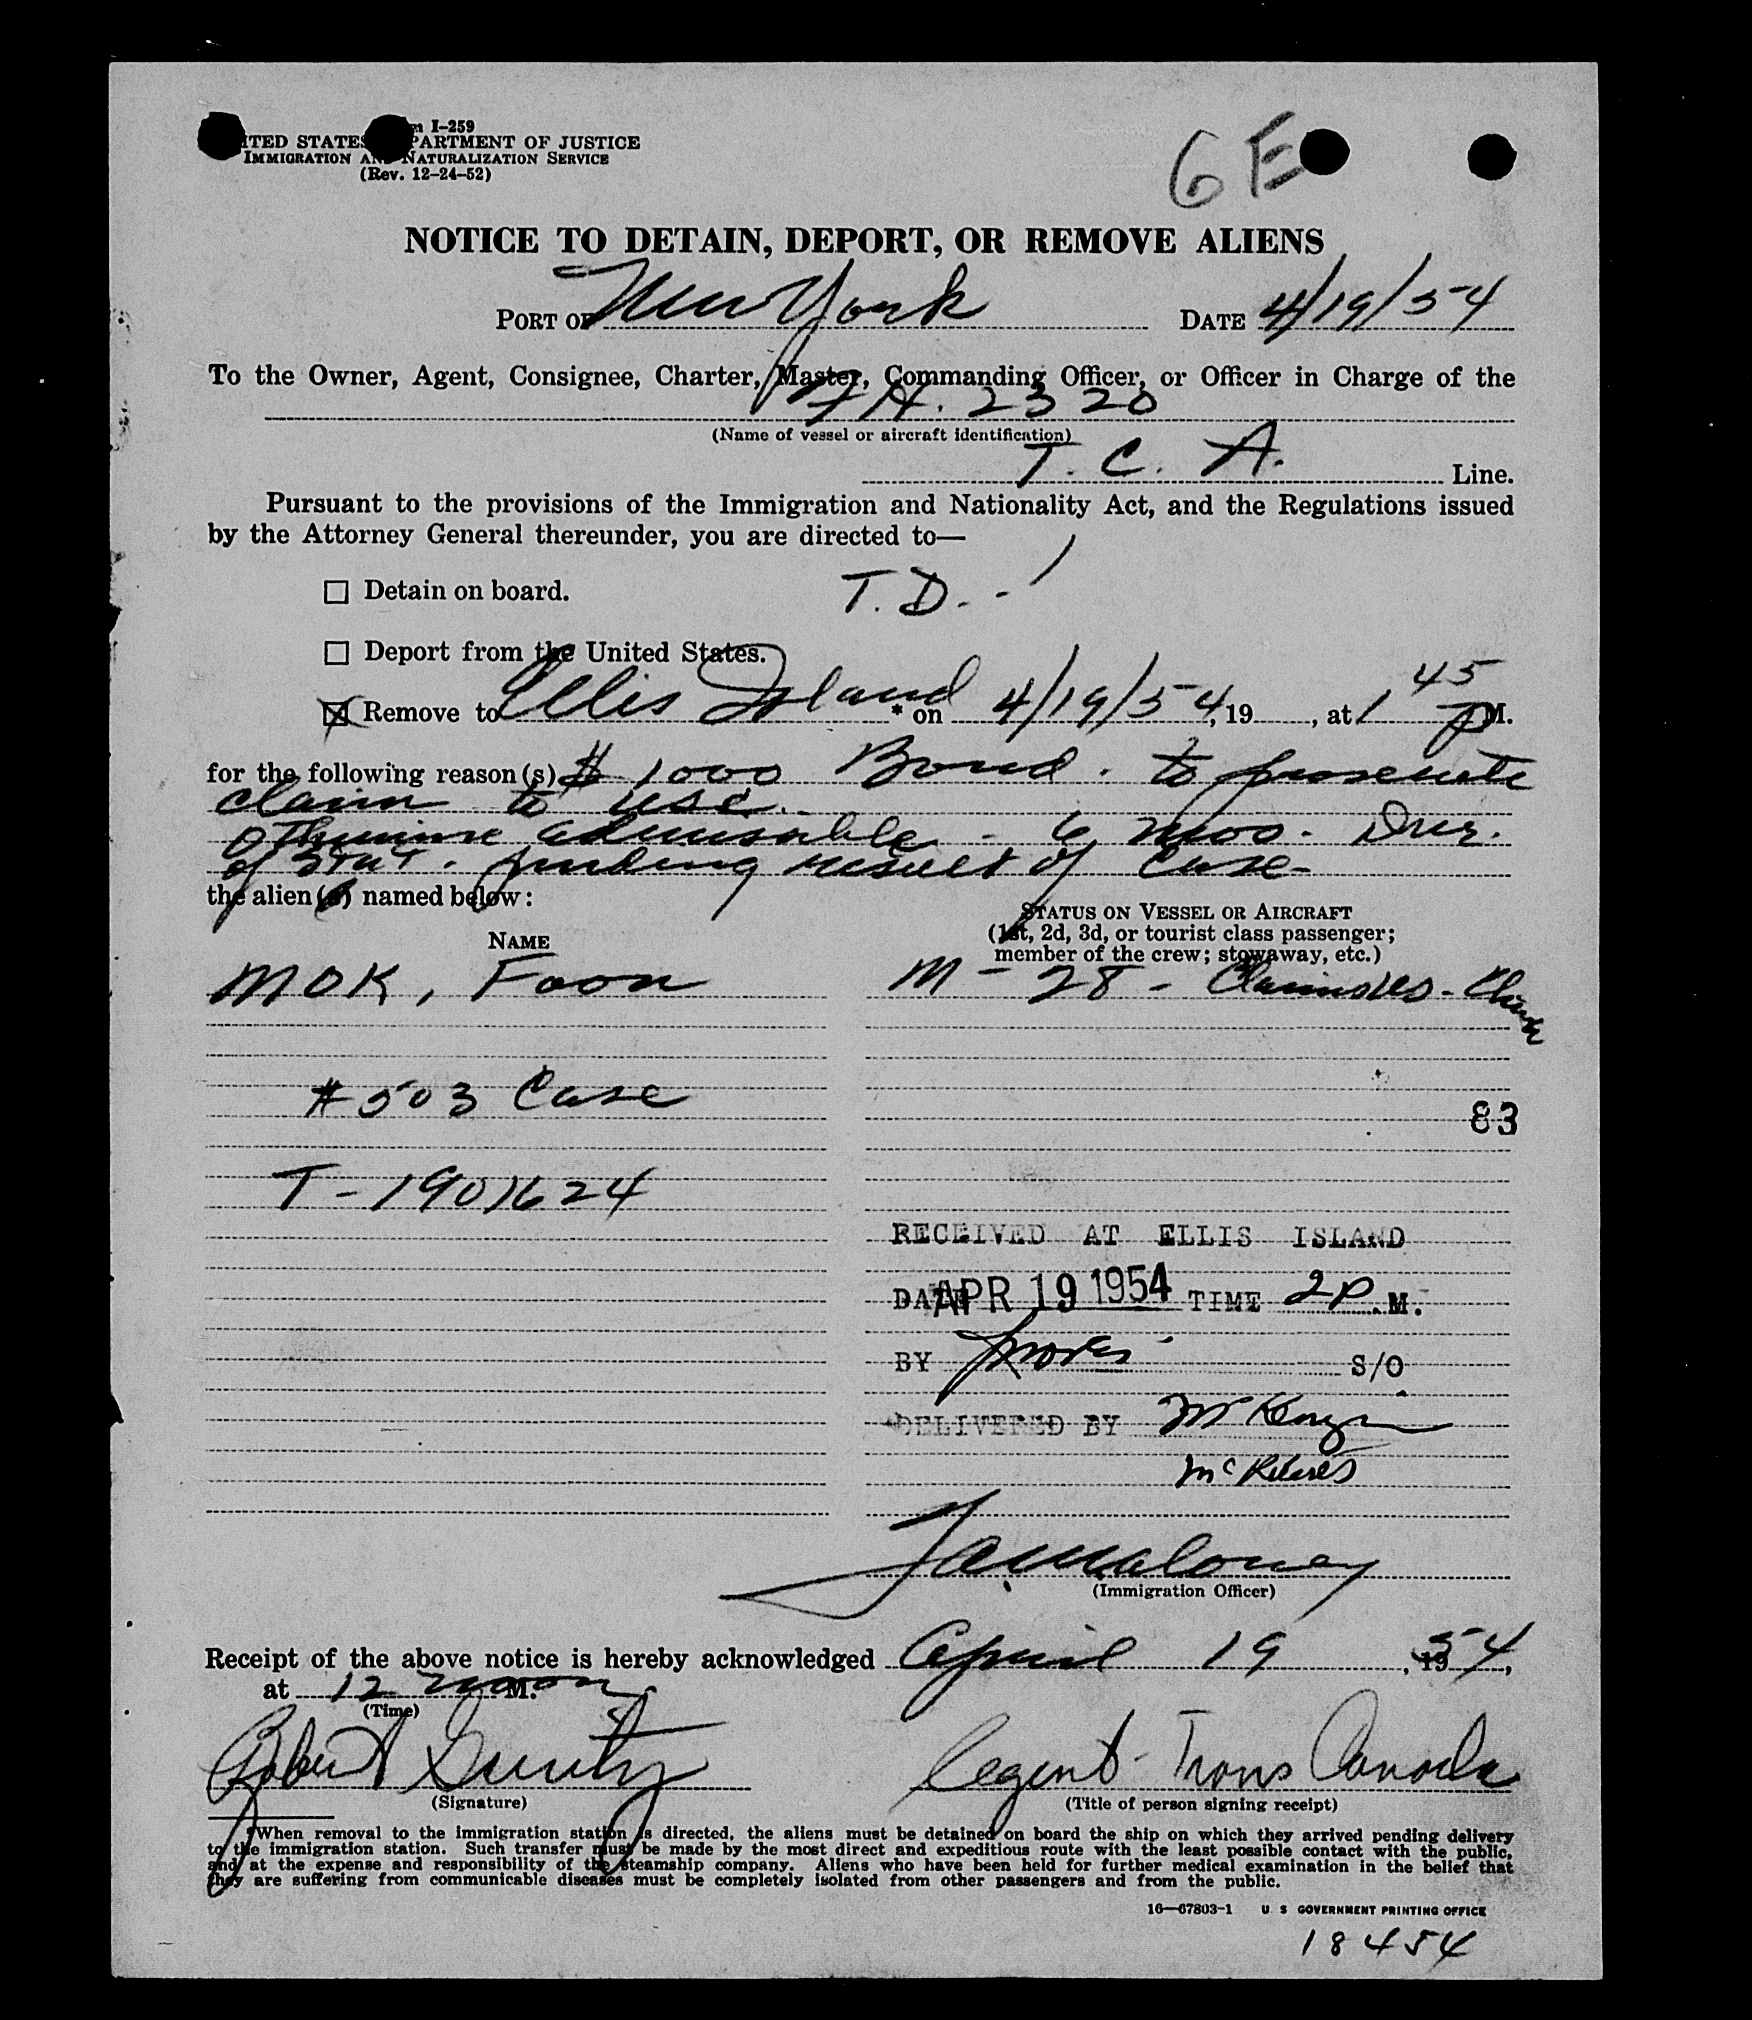 m I-259
ITED STATES PARTMENT OF JUSTICE
IMMIGRATION AND NATURALIZATION SERVICE
(Rev. 12-24-52)
6 E
NOTICE TO DETAIN, DEPORT, OR REMOVE ALIENS
PORT OF New York DATE 4/19/54
To the Owner, Agent, Consignee, Charter, Master, Commanding Officer, or Officer in Charge of the
2320
(Name of vessel or aircraft identification)
T. C. A. Line.
Pursuant to the provisions of the Immigration and Nationality Act, and the Regulations issued
by the Attorney General thereunder, you are directed to—
☐ Detain on board. T. D. -
☐ Deport from the United States.
☒ Remove to Ellis Island * on 4/19/54, 19 , at 1 45 P M.
for the following reason(s) $ 1000 Bond. to prosecute
claim to USC.
Otherwise admissable - 6 mos.
of Stat. pending result of Case-
the alien(s) named below:
NAME
STATUS ON VESSEL OR AIRCRAFT
(1st, 2d, 3d, or tourist class passenger;
member of the crew; stowaway, etc.)
MOK, Foon M - 28 - Claims US -
# 503 Case
83
T-1901624
RECEIVED AT ELLIS ISLAND
DATE APR 19 1954 TIME 2 P. M.
BY S/O
DELIVERED BY
Maloney
(Immigration Officer)
Receipt of the above notice is hereby acknowledged April 19, 1954,
at 12 noon M.
(Time)
Robert Agent - Trans Canada
(Signature) (Title of person signing receipt)
*When removal to the immigration station is directed, the aliens must be detained on board the ship on which they arrived pending delivery
to the immigration station. Such transfer must be made by the most direct and expeditious route with the least possible contact with the public,
and at the expense and responsibility of the steamship company. Aliens who have been held for further medical examination in the belief that
they are suffering from communicable diseases must be completely isolated from other passengers and from the public.
16—67803-1 U S GOVERNMENT PRINTING OFFICE
18454